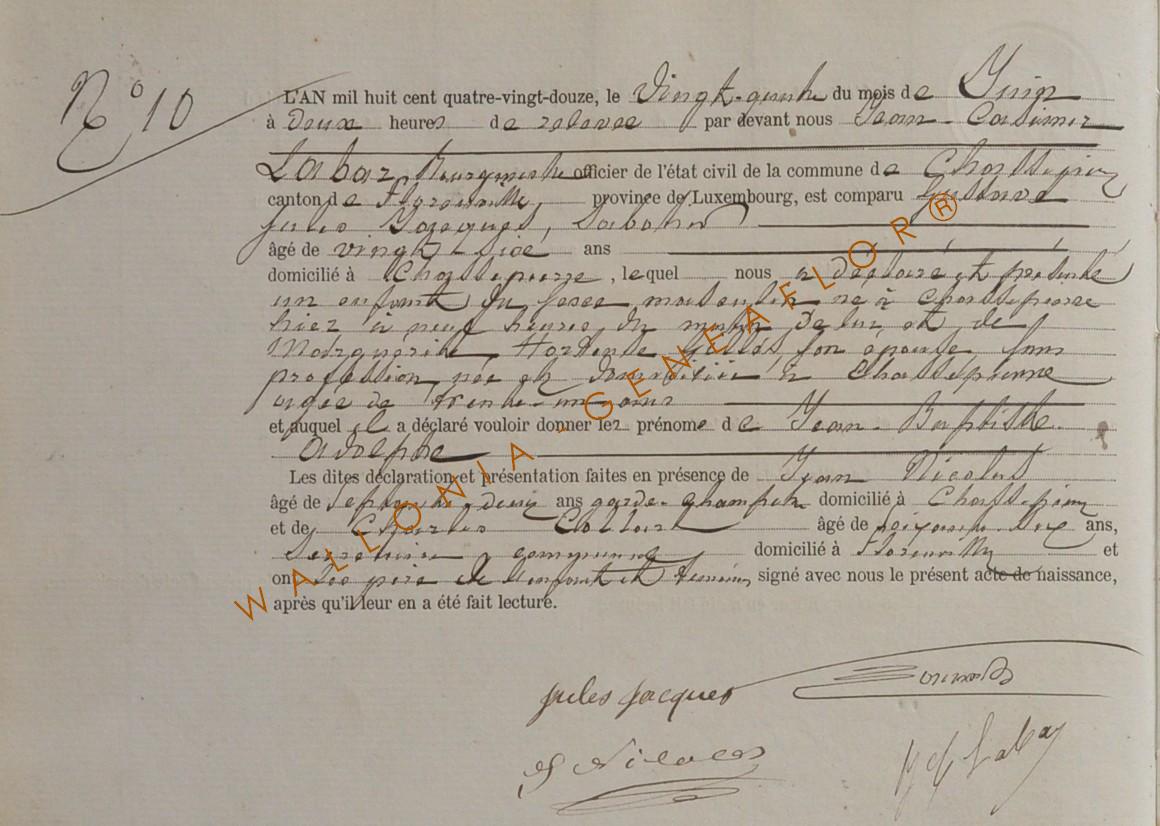 N° 10
L'AN mil huit cent quatre-vingt-douze, le Vingt-quatre du mois de Juin
à deux heures de relevée par devant nous Jean-Casimir
Labar, Bourgmestre officier de l'état civil de la commune de Chassepierre
canton de Florenville, province de Luxembourg, est comparu Gustave
Jules Jacques,
âgé de vingt-six ans
domicilié à Chassepierre, lequel nous a déclaré et présenté
un enfant du sexe masculin né à Chassepierre
hier à neuf heures du matin de lui et de
Marguerite, Hortense son épouse, sans
profession, née et domiciliée à Chassepierre
âgée de trente-un ans
et auquel il a déclaré vouloir donner les prénoms de Jean-Baptiste
Adolphe
Les dites déclaration et présentation faites en présence de Jean Nicolas
âgé de septante-deux ans garde-champêtre domicilié à Chassepierre
et de Charles âgé de soixante ans,
secrétaire communal domicilié à Florenville et
ont les père de l'enfant et témoins signé avec nous le présent acte de naissance,
après qu'il leur en a été fait lecture.
Jules Jacques
J Nicolas
J C Labar
WALLONIA - GENEAFLOR®